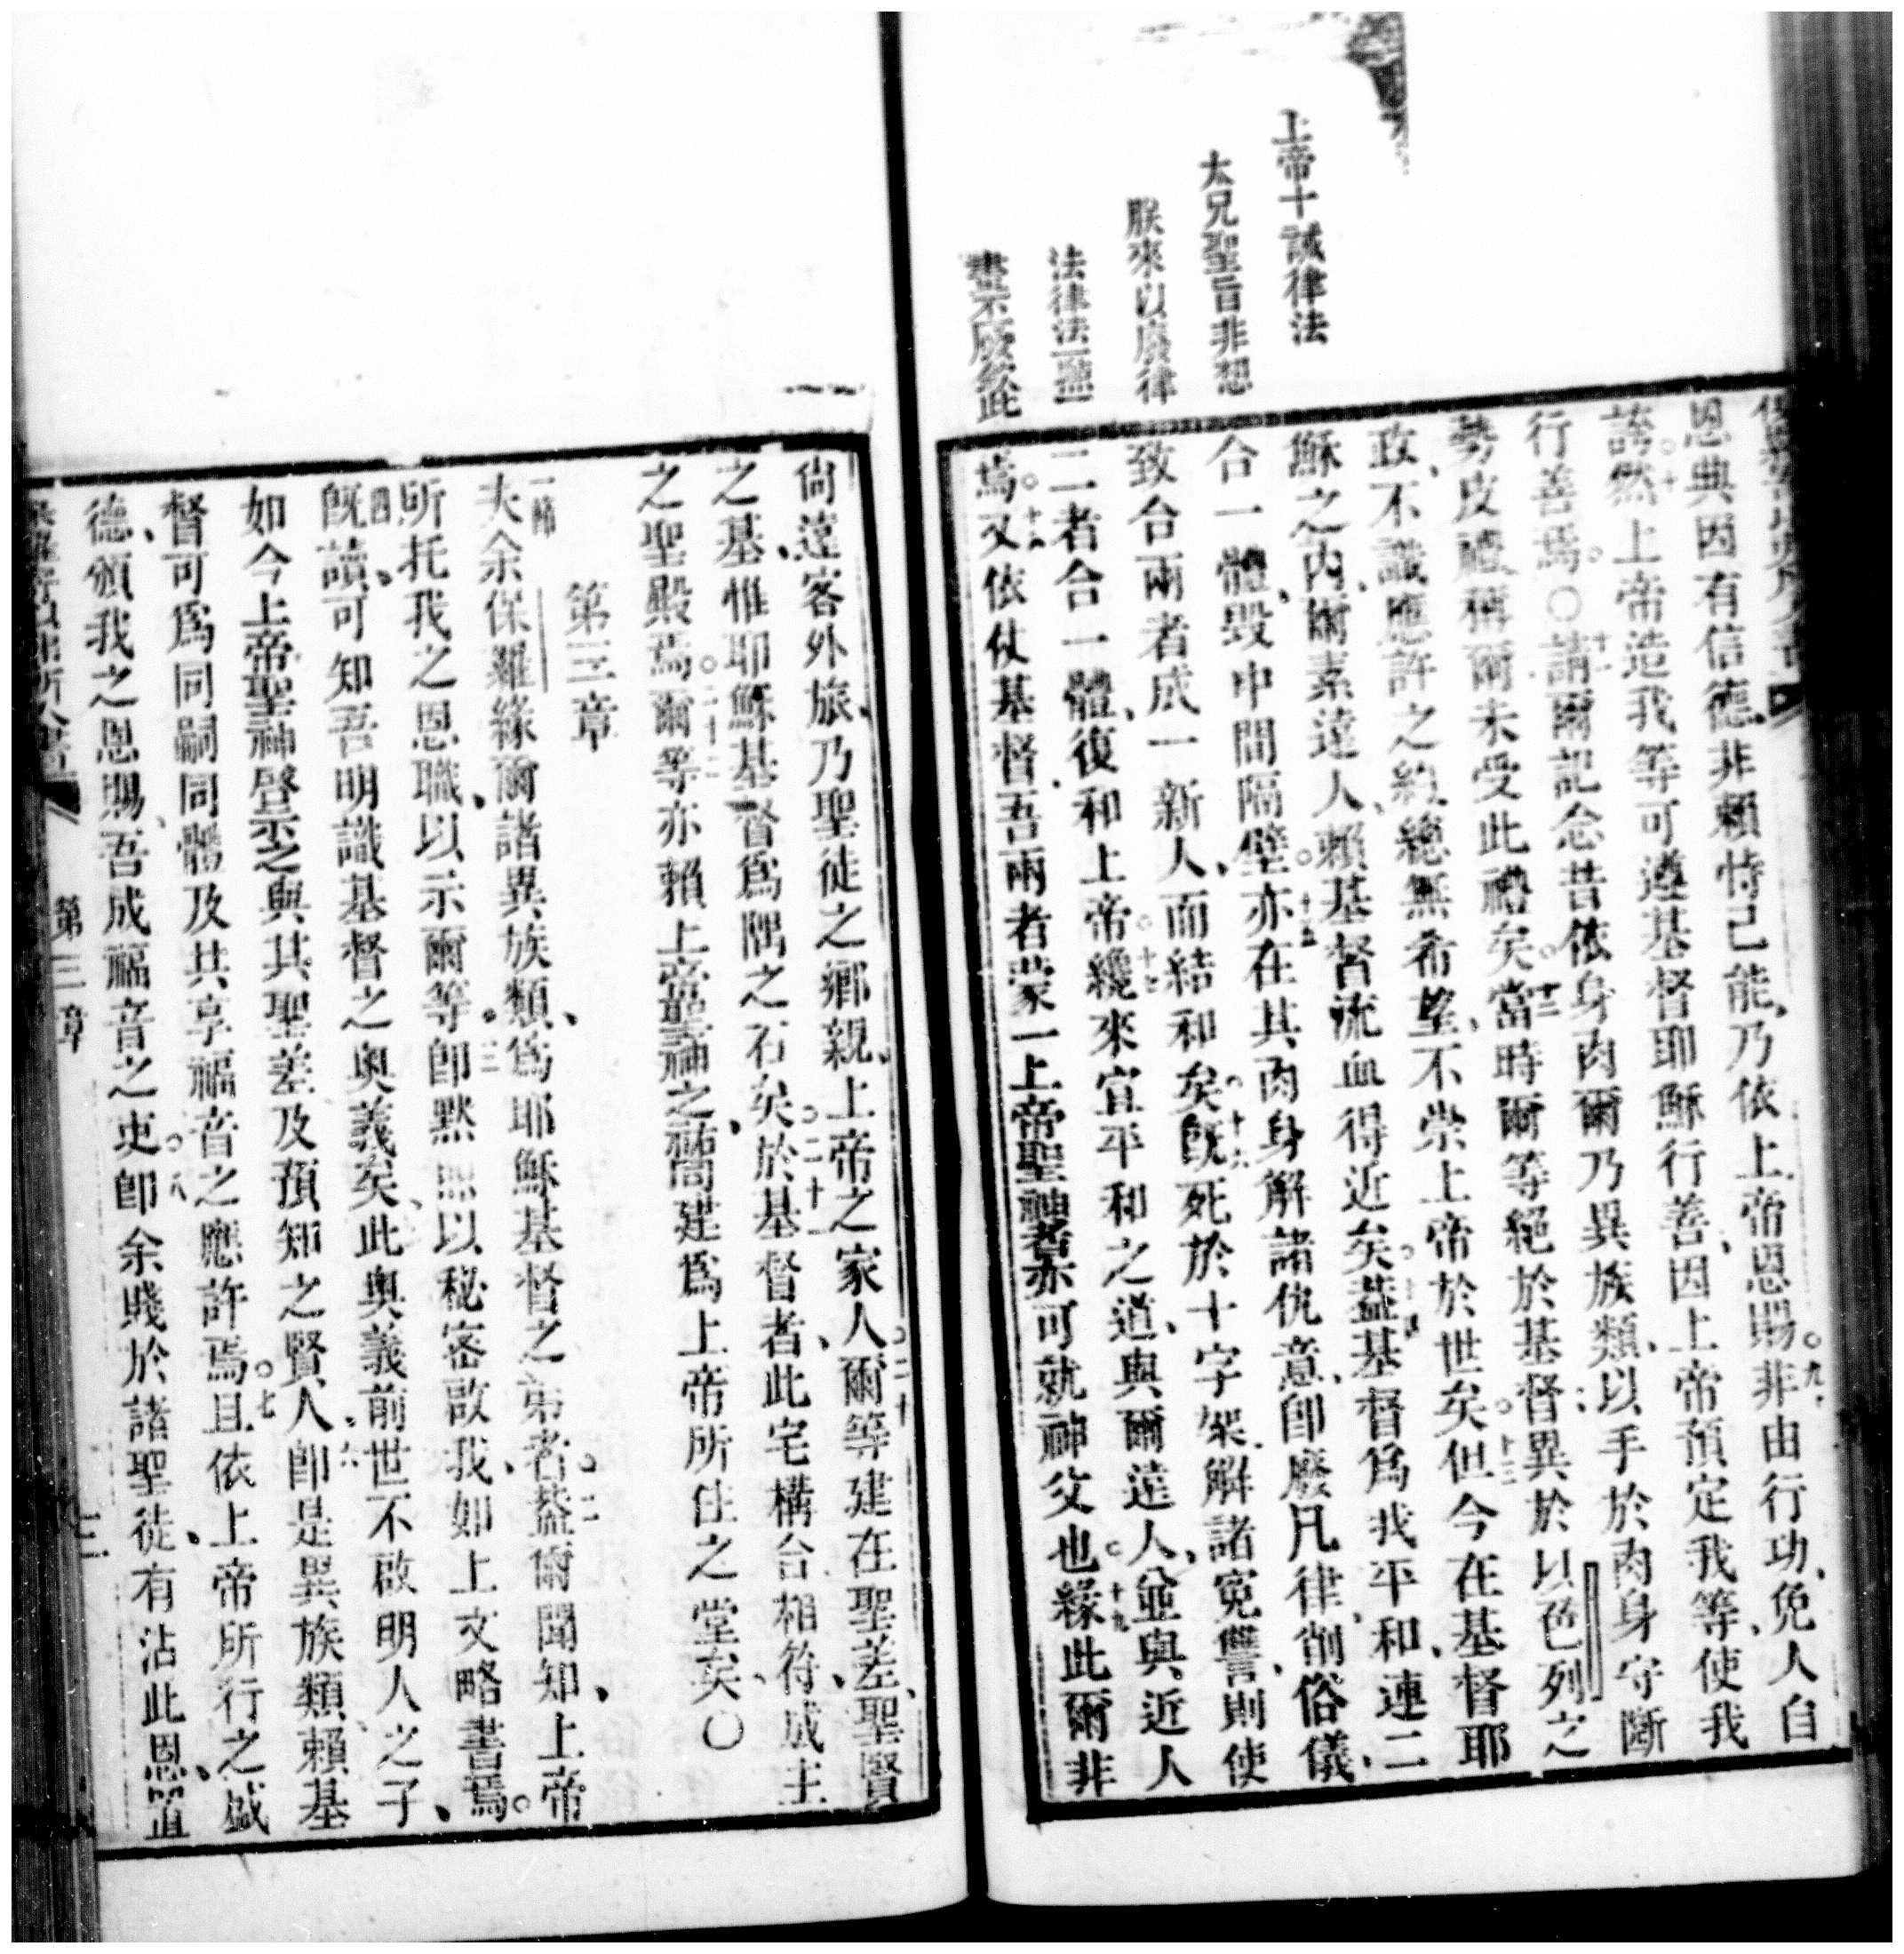 上帝十誡律法
太兄聖旨非想
朕來以廢律
法律法一點一
畫不廢從此
恩典因有信德、非賴恃己能、乃依上帝恩賜○九非由行功、免人自
誇○十然上帝造我等可遵基督耶穌行善、因上帝預定我等、使我
行善焉○十一請爾記念昔依身肉爾乃異族類、以手於肉身守斷
勢皮禮稱爾未受此禮矣○十二當時爾等絕於基督異於以色列之
政、不識應許之約、總無希望、不崇上帝於世矣○十三但今在基督耶
穌之內、爾素遠人、賴基督流血得近矣○十四葢基督爲我平和、連二
合一體、毀中間隔壁○十五亦在其肉身解諸仇意、卽廢凡律、削俗儀、
致合兩者成一新人、而結和矣○十六旣死於十字架、解諸冤讐、則使
二者合一體、復和上帝○十七纔來宣平和之道、與爾遠人、並與近人
焉○十八又依仗基督、吾兩者蒙一上帝聖神者亦可就神父也○十九緣此爾非
尙遠客外旅、乃聖徒之鄉親、上帝之家人○二十爾等建在聖差、聖賢
之基、惟耶穌基督爲隅之石矣○二十一於基督者、此宅構合相符、成主
之聖殿焉○二十二爾等亦賴上帝聖神之祐、同建爲上帝所住之堂矣○
第三章
一節
夫余保羅緣爾諸異族類、爲耶穌基督之第者○二葢爾聞知、上帝
所托我之恩職、以示爾等○三卽默照以秘密啟我、如上文略書焉○
四旣讀、可知吾明識基督之奥義矣、此奥義前世不啟明人之子、
如今上帝聖神啓示之與其聖差及預知之賢人○六卽是異族類、賴基
督可爲同嗣同體及共享福音之應許焉○七且依上帝所行之感
德、頒我之恩賜、吾成福音之吏○八卽余賤於諸聖徒、有沾此恩、宣
第三章